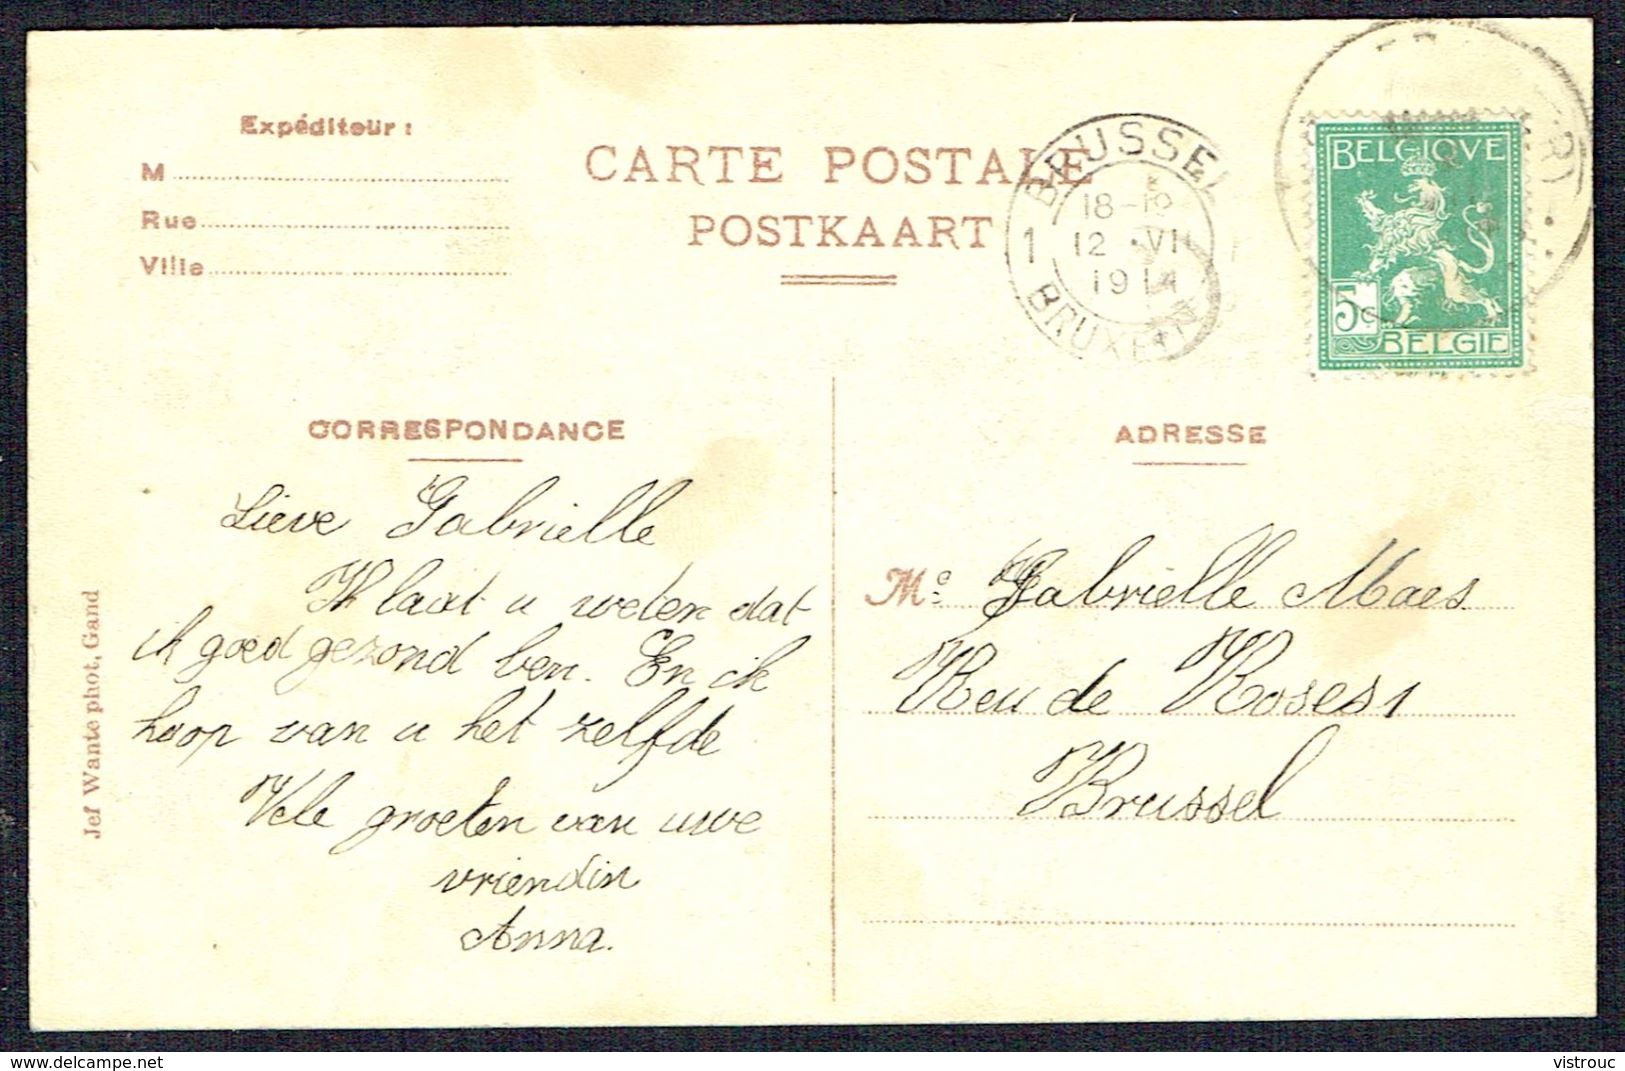 Expéditeur :
M
Rue
Ville
CARTE POSTALE
POSTKAART
BRUSSEL
18-19
12 VI
1914
1
BRUXELLES
BELGIQVE
5c
BELGIE
CORRESPONDANCE
Lieve Gabrielle
Ik laat u weten dat
ik goed gezond ben. En ik
hoop van u het zelfde
Vele groeten van uwe
vriendin
Anna.
ADRESSE
Me Gabrielle Maes
Reu de Roses 1
Brussel
Jef Wante phot, Gand
delcampe.net
vistrouc